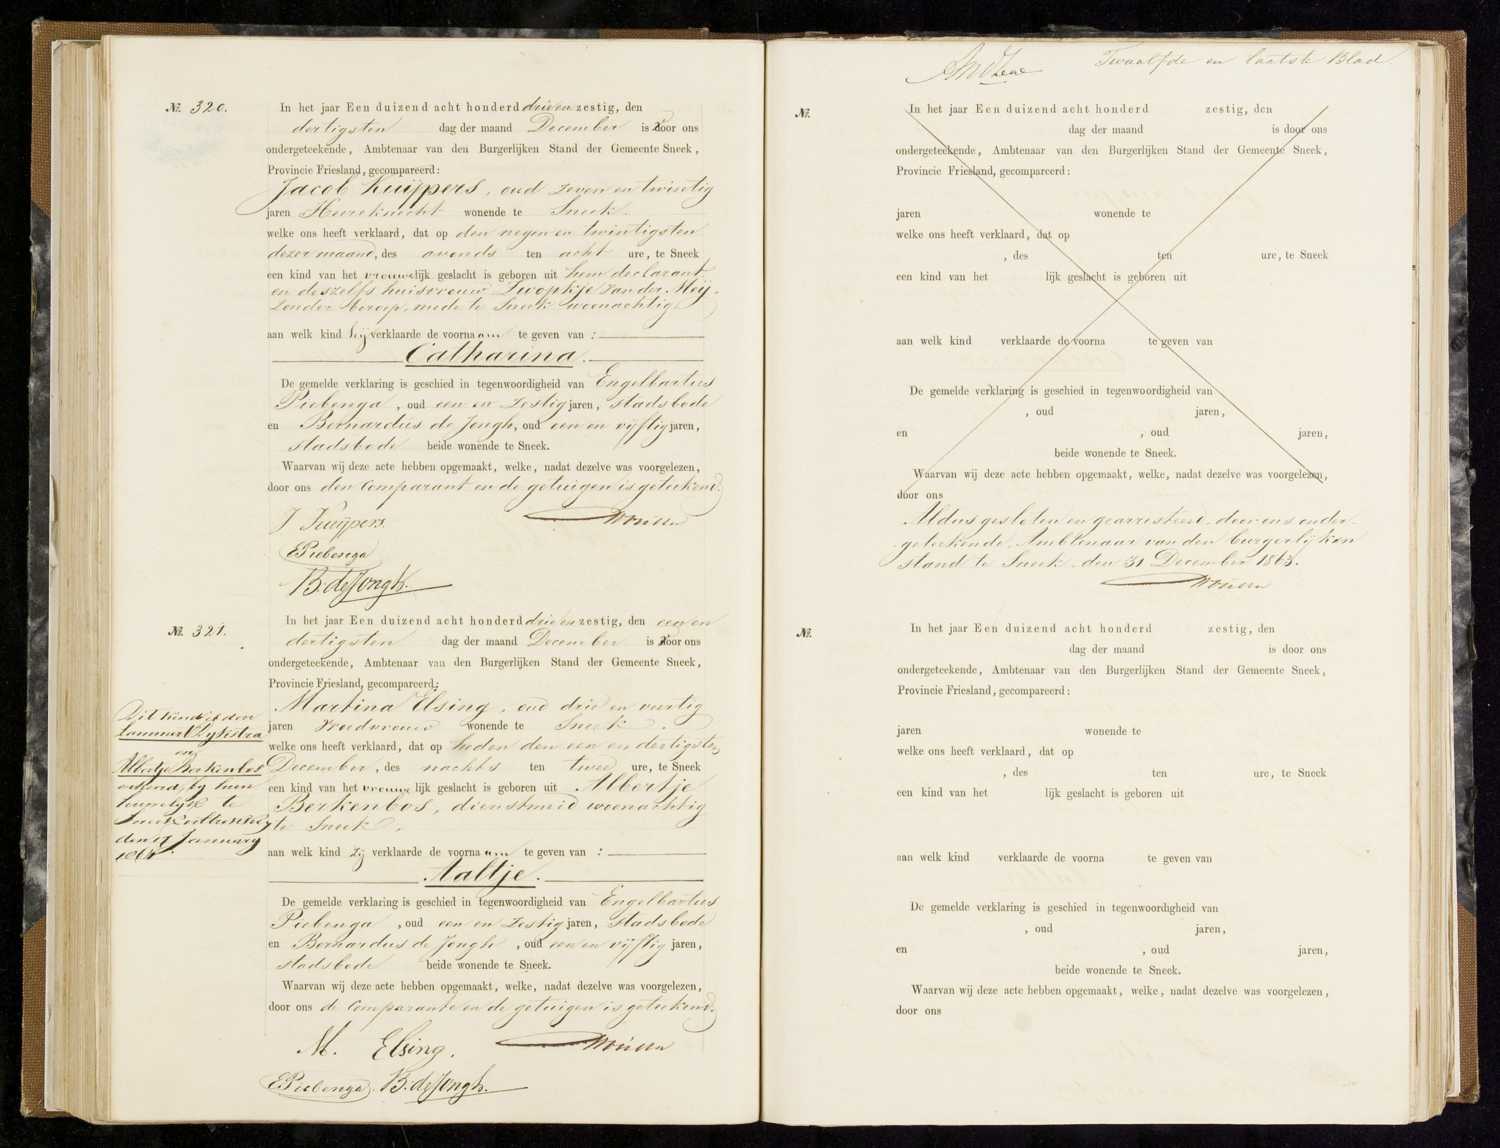 №. 320.
In het jaar Een duizend acht honderd drieen zestig, den
dertigsten dag der maand December is voor ons
ondergeteekende, Ambtenaar van den Burgerlijken Stand der Gemeente Sneek,
Provincie Friesland, gecompareerd:
Jacob Kuijpers, oud zeven en twintig
jaren Heereknecht wonende te Sneek.
welke ons heeft verklaard, dat op den negen en twintigsten
dezer maand, des avonds ten acht ure, te Sneek
een kind van het vrouwelijk geslacht is geboren uit hem declarant
en deszelfs huisvrouw Zwopkje van der Meij,
zonder beroep, mede te Sneek woonachtig
aan welk kind hij verklaarde de voornaam te geven van :
Catharina.
De gemelde verklaring is geschied in tegenwoordigheid van Engelbartus
Piebenga, oud een en zestig jaren, stadsbode
en Bernardus de Jongh, oud een en vijftig jaren,
stadsbode beide wonende te Sneek.
Waarvan wij deze acte hebben opgemaakt, welke, nadat dezelve was voorgelezen,
door ons den Comparant en de getuigen is geteekend.
J Kuijpers.
EPiebenga
B. de Jongh.
№. 321.
In het jaar Een duizend acht honderd drieen zestig, den een en
dertigsten dag der maand December is voor ons
ondergeteekende, Ambtenaar van den Burgerlijken Stand der Gemeente Sneek,
Provincie Friesland, gecompareerd:
Martina Elsing, oud drie en veertig
jaren Vroedvrouw wonende te Sneek.
welke ons heeft verklaard, dat op heden den een en dertigsten
December, des nachts ten twee ure, te Sneek
een kind van het vrouwelijk geslacht is geboren uit Albertje
Berkenbos, dienstmeid woonachtig
te Sneek.
aan welk kind zij verklaarde de voornaam te geven van :
Aaltje.
De gemelde verklaring is geschied in tegenwoordigheid van Engelbartus
Piebenga, oud een en zestig jaren, stadsbode
en Bernardus de Jongh, oud een en vijftig jaren,
stadsbode beide wonende te Sneek.
Waarvan wij deze acte hebben opgemaakt, welke, nadat dezelve was voorgelezen,
door ons de Comparante en de getuigen is geteekend.
M. Elsing.
EPiebenga. B. de Jongh.
Dit kind is door
Lammert Zijlstra
en
Albertje Berkenbos
erkend bij hun
huwelijk te
Sneek
den 17 January
Twaalfde en laatste Blad
№.
In het jaar Een duizend acht honderd zestig, den
dag der maand is door ons
ondergeteekende, Ambtenaar van den Burgerlijken Stand der Gemeente Sneek,
Provincie Friesland, gecompareerd:
jaren wonende te
welke ons heeft verklaard, dat op
, des ten ure, te Sneek
een kind van het lijk geslacht is geboren uit
aan welk kind verklaarde de voorna te geven van
De gemelde verklaring is geschied in tegenwoordigheid van
, oud jaren,
en , oud jaren,
beide wonende te Sneek.
Waarvan wij deze acte hebben opgemaakt, welke, nadat dezelve was voorgelezen,
door ons
Aldus gesloten en gearresteerd door ons onder-
geteekende, Ambtenaar van den burgerlijken
stand te Sneek den 31 December 1863.
№.
In het jaar Een duizend acht honderd zestig, den
dag der maand is door ons
ondergeteekende, Ambtenaar van den Burgerlijken Stand der Gemeente Sneek,
Provincie Friesland, gecompareerd:
jaren wonende te
welke ons heeft verklaard, dat op
, des ten ure, te Sneek
een kind van het lijk geslacht is geboren uit
aan welk kind verklaarde de voorna te geven van
De gemelde verklaring is geschied in tegenwoordigheid van
, oud jaren,
en , oud jaren,
beide wonende te Sneek.
Waarvan wij deze acte hebben opgemaakt, welke, nadat dezelve was voorgelezen,
door ons